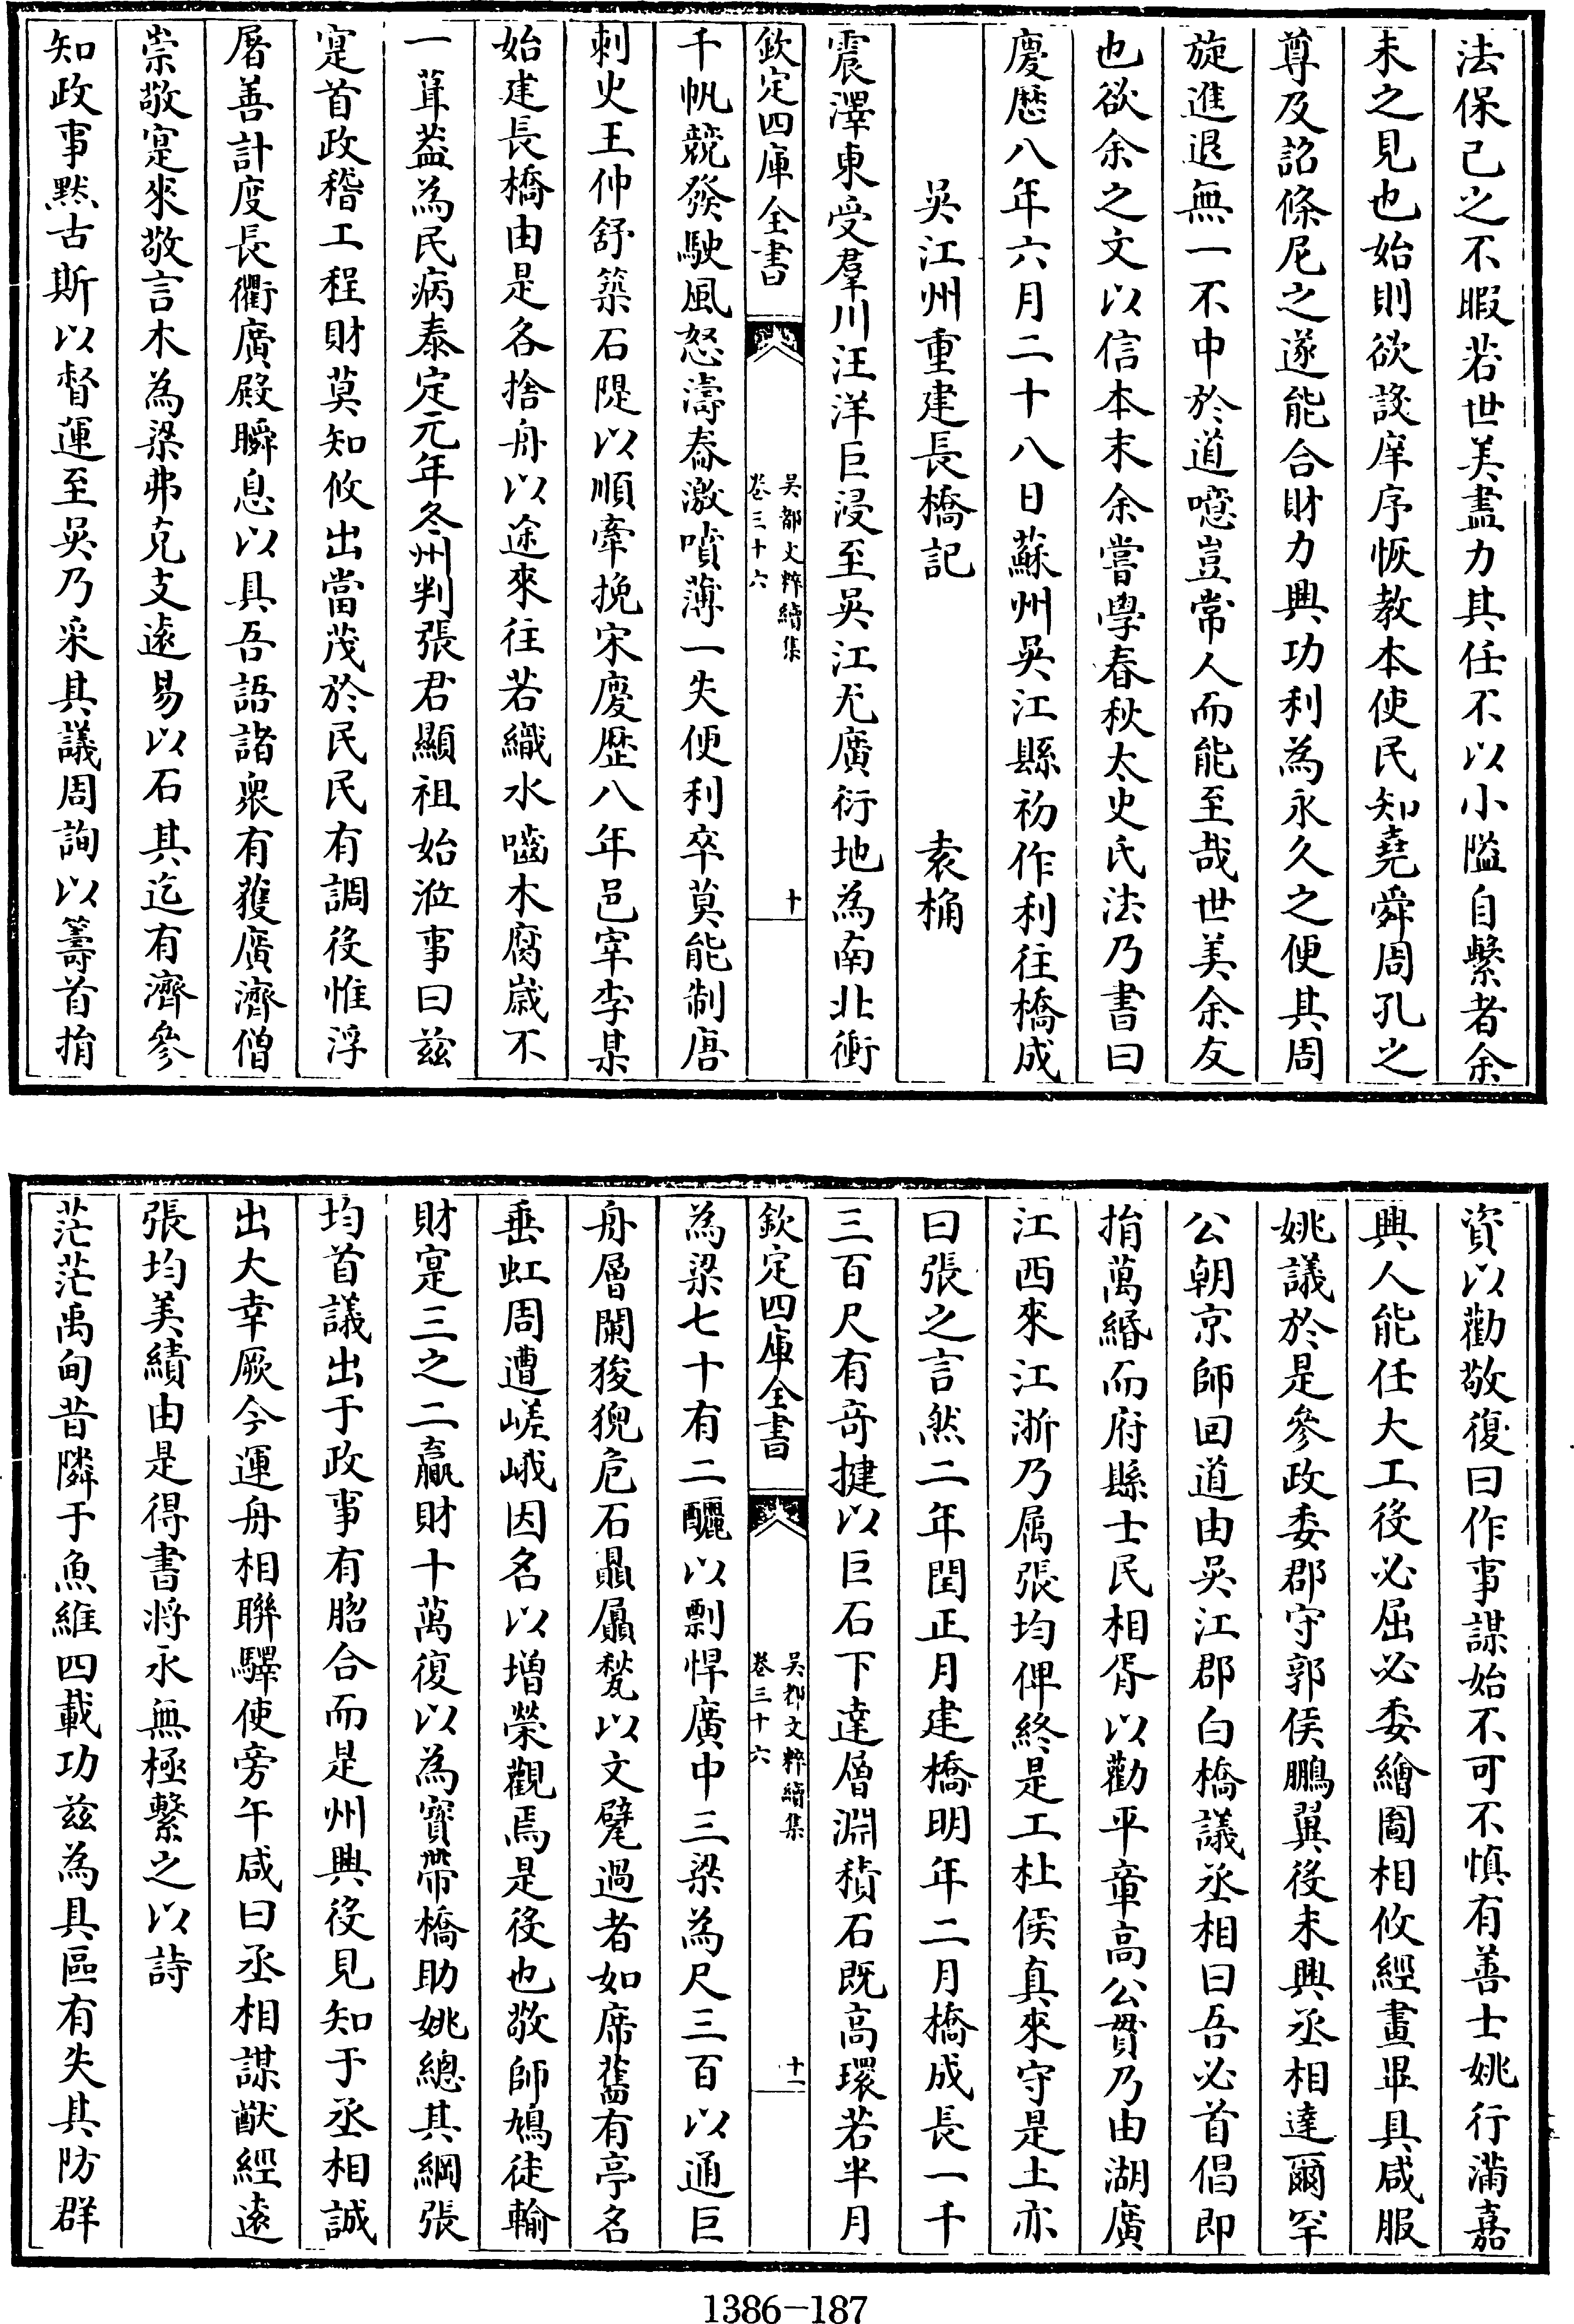 法保己之不暇若世美盡力其任不以小隘自繫者余
未之見也始則欲設庠序恢教本使民知堯舜周孔之
尊及詔條尼之遂能合財力興功利為永久之便其周
旋進退無一不中於道噫豈常人而能至哉世美余友
也欲余之文以信本末余嘗學春秋太史氏法乃書曰
慶歴八年六月二十八日蘇州吳江縣初作利往橋成
吳江州重建長橋記 袁桷
震澤東受羣川汪洋巨浸至吳江尤廣衍地為南北衝
欽定四庫全書
吳都文粹續集
卷三十六
十
千帆競發駛風怒濤春激噴薄一失便利卒莫能制唐
刺史王仲舒築石隄以順牽挽宋慶歴八年邑宰李某
始建長橋由是各捨舟以途來往若織水囓木腐歲不
一葺益為民病泰定元年冬州判張君顯祖始涖事曰茲
寔首政稽工程財莫知攸出當茂於民民有調役惟浮
屠善計度長衢廣殿瞬息以具吾語諸衆有獲廣濟僧
崇敬寔來敬言木為梁弗克支遠易以石其迄有濟參
知政事黙古斯以督運至吳乃采其議周詢以籌首捐
資以勸敬復曰作事謀始不可不慎有善士姚行滿嘉
興人能任大工役必屈必委繪圖相攸經畫畢具咸服
姚議於是參政委郡守郭侯鵬翼役未興丞相達爾罕
公朝京師回道由吳江郡白橋議丞相曰吾必首倡即
捐萬緡而府縣士民相胥以勸平章高公貫乃由湖廣
江西來江浙乃属張均俾終是工杜侯真來守是土亦
曰張之言然二年閏正月建橋明年二月橋成長一千
三百尺有竒揵以巨石下達層淵積石既高環若半月
欽定四庫全書
吳都文粹續集
卷三十六
十一
為梁七十有二釃以剽悍廣中三梁為尺三百以通巨
舟層闌狻猊危石贔屭甃以文甓過者如席舊有亭名
垂虹周遭嵯峨因名以增榮觀焉是役也敬師鳩徒輸
財寔三之二贏財十萬復以為寳帶橋助姚總其綱張
均首議出于政事有胳合而是州興役見知于丞相誠
出大幸厥今運舟相聯驛使旁午咸曰丞相謀猷經遠
張均美績由是得書将永無極繫之以詩
茫茫禹甸昔隣于魚維四載功茲為具區有失其防群
1386-187